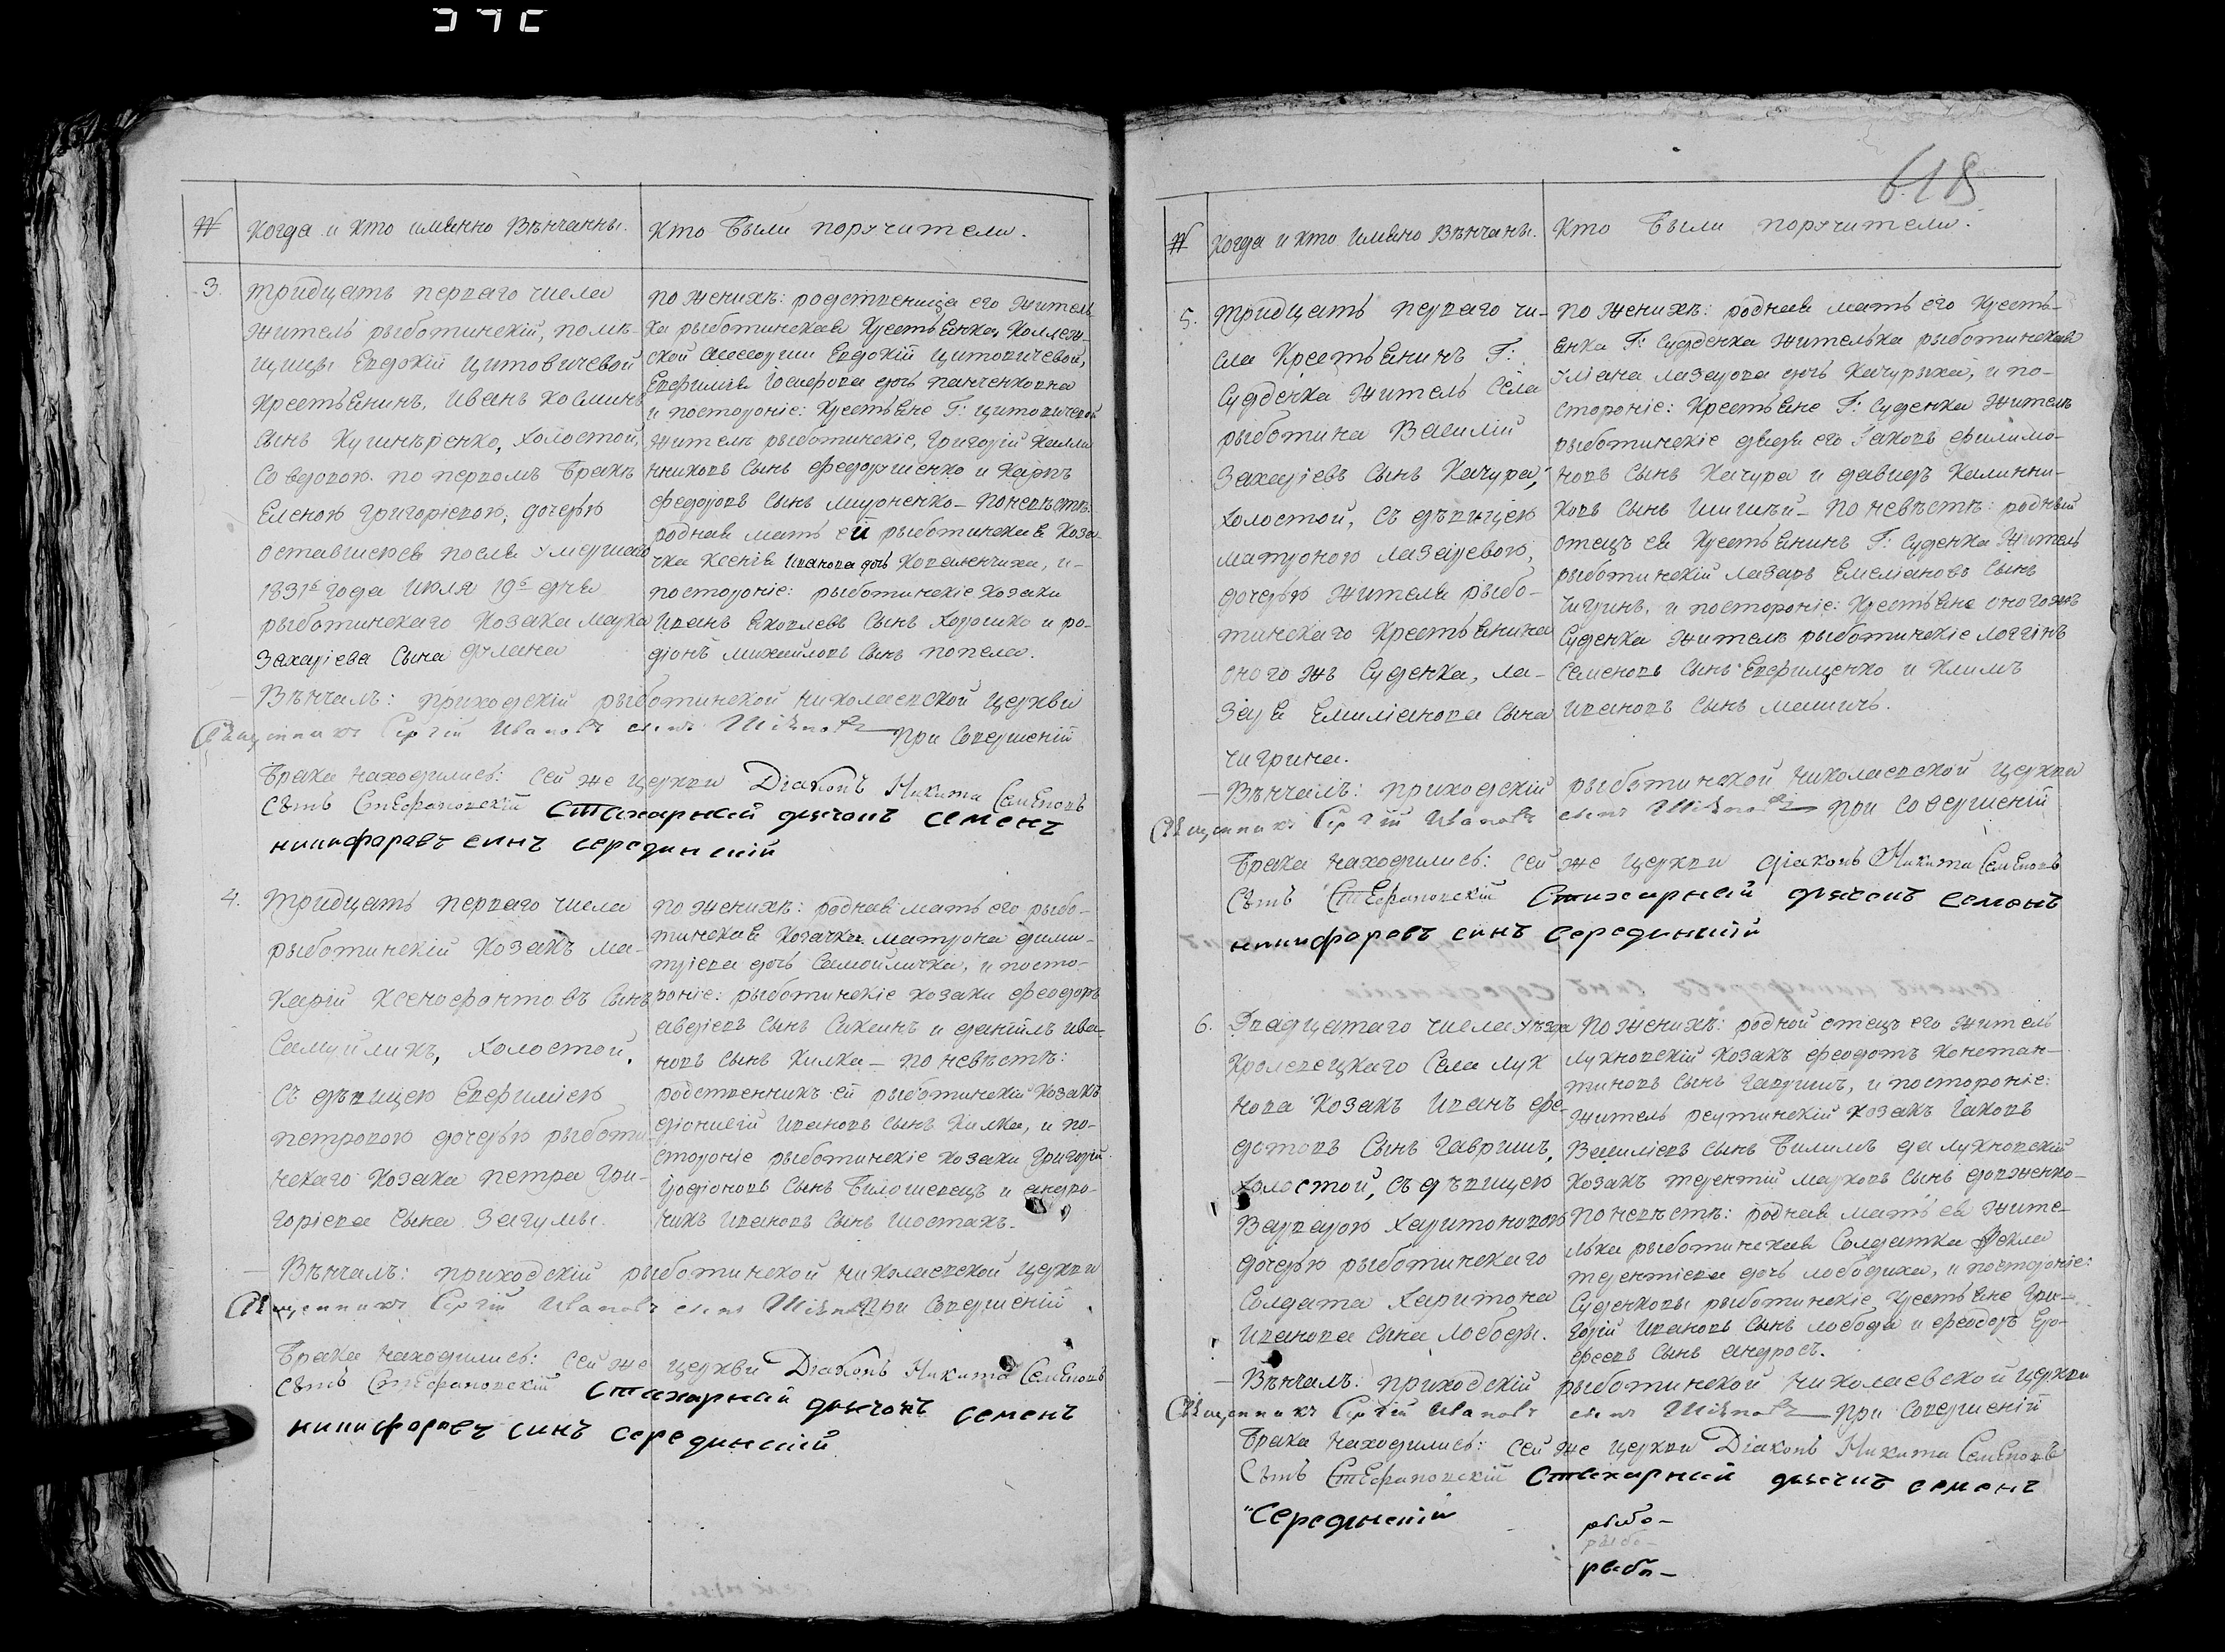 № Когда и кто имянно Вѣнчанны. Кто были поручители.
3. Тридцать перваго числа
житель рыботинскій, помѣ-
щицы Евдокіи Цитовичевой
Крестьянинъ, Иванъ Косминъ
сынъ Холостой,
со вдовою по первомъ бракѣ
Еленою Григоріевою, дочерью
оставшеюся после умершаго
1831го года июля 19го дня
рыботинскаго Козака Марка
Захаріева сына
по женихѣ: родственица его житель
ка рыботинская Крестьянка, Коллеж-
ской Ассесорши Евдокіи Цитовичевой,
Евфимія Іосифова дочь Панченковна
и постороніе: Крестьяне Г: Цитовичевой
жители рыботинскіе, Григорій Калли
нниковъ сынъ Федорченко и Карпъ
Федоровъ сынъ Мироненко – по невѣстѣ:
родная мать ей рыботинская Коза-
чка Ксенія Иванова дочь Коваленчиха, и-
постороніе: рыботинскіе козаки
Иванъ Яковлевъ сынъ Хорошко и Ро-
діонъ Михайловъ сынъ Попела.
– Вѣнчалъ: приходскій рыботинской Николаевской церкви
Священникъ Сергій Ивановъ сынъ При совершеній
брака находились: сей же церкви Діаконъ Никита Семеновъ
сынъ Стефановскій Стихарный дячокъ Семенъ
никифоровъ синъ Серединскій
4. Тридцать перваго числа
рыботинскій Козакъ Ма-
карій Ксенофонтовъ сынъ
Самуйликъ, Холостой,
съ дѣвицею Евфиміею
Петровою дочерью рыботи-
нскаго Козака Петра Гри-
горіева сына Загумы.
по женихѣ: родная мать его рыбо-
тинская Козачка Матрона Дими-
тріева дочь Самойличка, и посто-
роніе: рыботинскіе козаки Феодоръ
Авдіевъ сынъ и Даніилъ Ива-
новъ сынъ Килка – по невѣстѣ:
родственникъ ей рыботинскій Козакъ
Діонисій Ивановъ сынъ Килка, и по-
стороніе рыботинскіе козаки Григорій
Іродіоновъ сынъ Билошевецъ и Андро-
никъ Ивановъ сынъ Шостакъ.
– Вѣнчалъ: приходскій рыботинской Николаевской церкви
Священникъ Сергій Ивановъ сынъ При совершеній
брака находились: сей же церкви Діаконъ Никита Семеновъ
сынъ Стефановскій Стихарный дячокъ Семенъ
никифоровъ синъ Серединскій
618
№ Когда и кто имяно Вѣнчаны. Кто были поручители.
5. Тридцать перваго чи-
сла Крестьянинъ Г:
Судденка житель села
рыботина Василій
Захаріевъ сынъ Качура,
Холостой, съ дѣвицею
Матроною Лазаревою,
дочерью жителя рыбо-
тинскаго Крестьянина
оного жъ Суденка, Ла-
заря Емиліанова сына
Чигрина.
по женихѣ: родная мать его Кресть-
янка Г: Судденка жителька рыботинская
Уліана Лазарова дочь Качурыха, и по-
стороніе: Крестьяне Г: Суденка жители
рыботинскіе дядя его Іаковъ Филимо-
новъ сынъ Качура и Давидъ Калинни-
ковъ сынъ – по невѣстѣ: родный
отецъ ея Крестьянинъ Г: Суденка житель
рыботинскій Лазарь Емеліановъ сынъ
Чигринъ, и постороніе: Крестьяне оного жъ
Суденка жители рыботинскіе Логгінъ
Семеновъ сынъ Евфименко и Климъ
Ивановъ сынъ
– Вѣнчалъ: приходскій рыботинской Николаевской церкви
Священникъ Сергій Ивановъ сынъ при совершеній
брака находились: сей же церкви діаконъ Никита Семеновъ
сынъ Стефановскій Стихарный дячокъ Семенъ
никифоровъ синъ Серединскій
6. Двадцатаго числа уѣзда
Кролевецкаго Села Лук
нова Козакъ Иванъ Фе-
дотовъ сынъ Гавришъ,
Холостой, съ дѣвицею
Варварою Харитоновою
дочерью рыботинскаго
Солдата Харитона
Иванова сына Лободы.
По женихѣ: родной отецъ его житель
лукновскій козакъ Феодотъ Констан-
тиновъ сынъ Гавришъ, и постороніе:
житель реутинскій козакъ Іаковъ
Василіевъ сынъ Билимъ да лукновскій
козакъ Терентій Марковъ сынъ Довженко-
По невѣстѣ: родная мать ея жите-
лька рыботинская Солдатка Фекла
Терентіева дочь Лободиха, и постороніе:
Суденковы рыботинскіе крестьяне Гри-
горій Ивановъ сынъ Лобода и Феодоръ Еро-
феевъ сынъ Андросъ.
– Вѣнчалъ: приходскій рыботинской Николаевской церкви
Священникъ Сергій Ивановъ сынъ При совершеній
брака находились: сей же церкви Діаконъ Никита Семеновъ
сынъ Стефановскій Стихарный дячокъ Семенъ
Серединскій
рыбо-
рыбо-
рыбо-